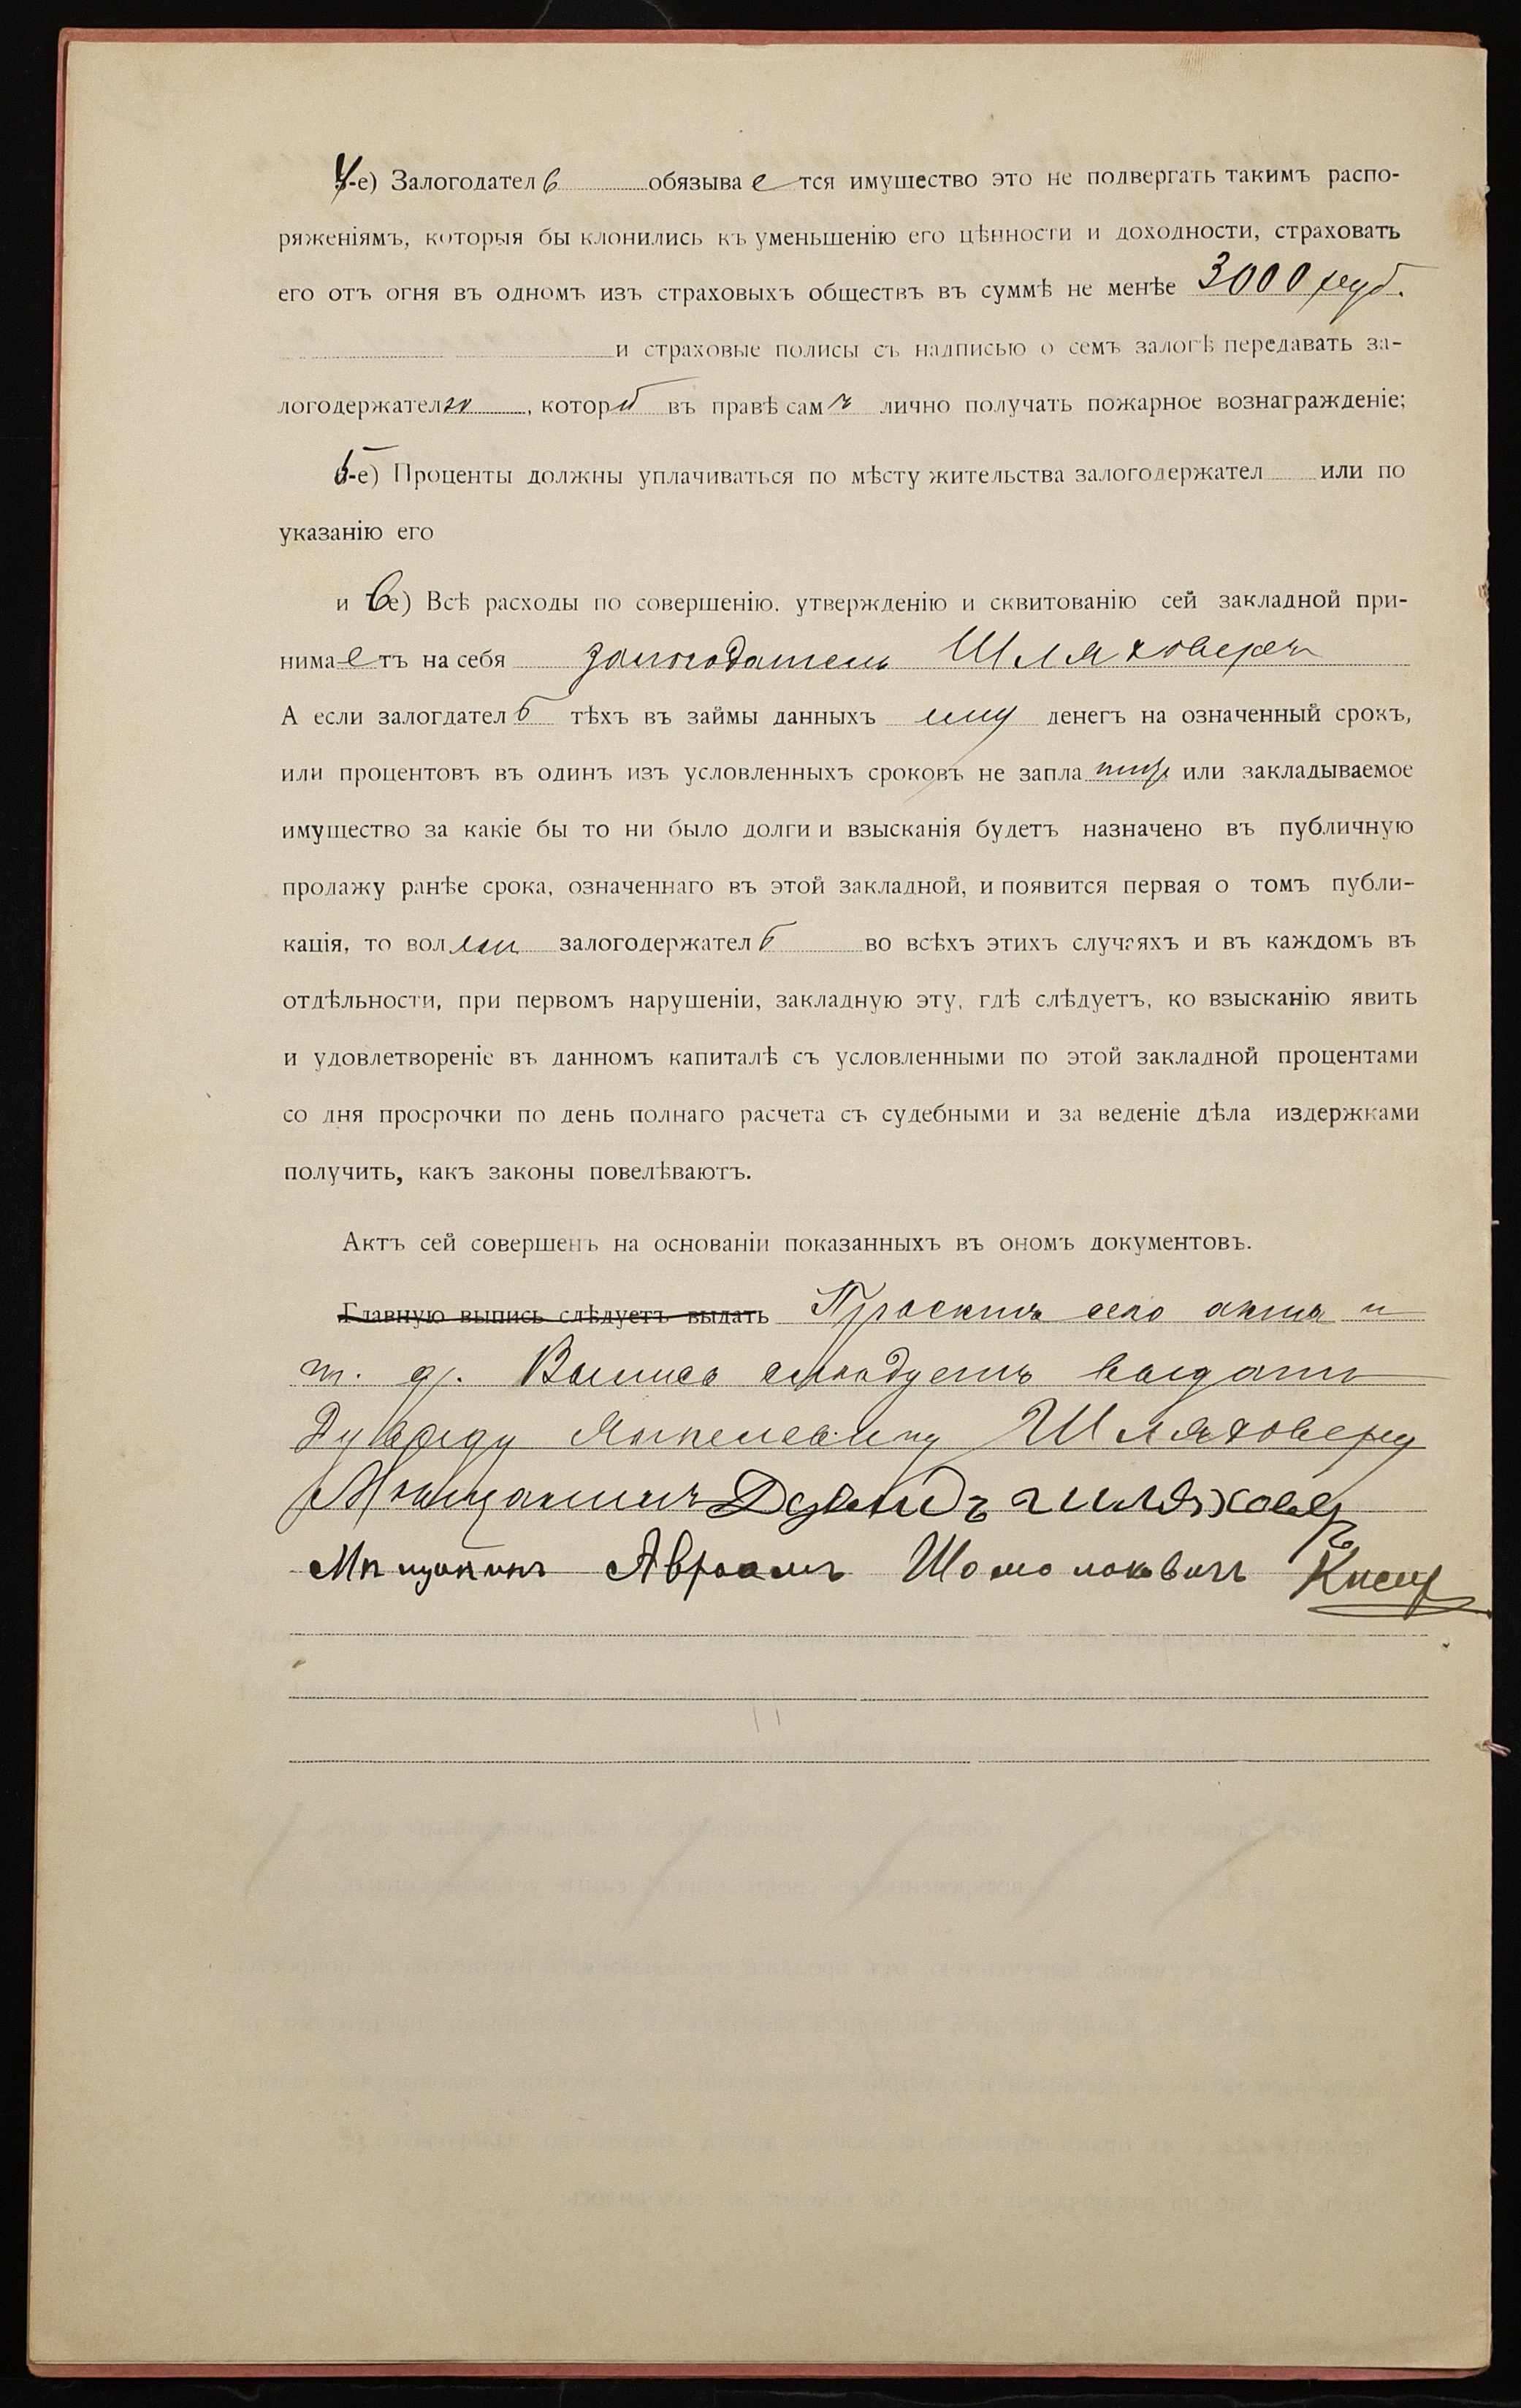 4-е) Залогодатель обязывается имущество это не подвергать такимъ распо-
ряженіямъ, которыя бы клонились къ уменьшенію его цѣнности и доходности, страховать
его отъ огня въ одномъ изъ страховыхъ обществъ въ суммѣ не менѣе 3000 руб.
и страховые полисы съ надписью о семъ залогѣ передавать за-
логодержателю, который въ правѣ самъ лично получать пожарное вознагражденіе;
5-е) Проценты должны уплачиваться по мѣсту жительства залогодержател или по
указанію его
и 6е) Всѣ расходы по совершенію. утвержденію и сквитованію сей закладной при-
нимаетъ на себя залогодатель Шляховеръ
А если залогдатель тѣхъ въ займы данныхъ ему денегъ на означенный срокъ,
или процентовъ въ одинъ изъ условленныхъ сроковъ не заплатитъ или закладываемое
имущество за какіе бы то ни было долги и взысканія будетъ назначено въ публичную
продажу ранѣе срока, означеннаго въ этой закладной, и появится первая о томъ публи-
кація, то воленъ залогодержатель во всѣхъ этихъ случаяхъ и въ каждомъ въ
отдѣльности, при первомъ нарушеніи, закладную эту, гдѣ слѣдуетъ, ко взысканію явить
и удовлетвореніе въ данномъ капиталѣ съ условленными по этой закладной процентами
со дня просрочки по день полнаго расчета съ судебными и за веденіе дѣла издержками
получить, какъ законы повелѣваютъ.
Актъ сей совершенъ на основаніи показанныхъ въ ономъ документовъ.
Главную выпись слѣдуетъ выдать Проектъ сего акта и
т. д. Выпись слѣдуетъ выдать
Дувиду Янкелевичу Шляховеру
Мѣщанинъ Дувидъ Шляховеръ
Мѣщанинъ Авраамъ Кнеллер